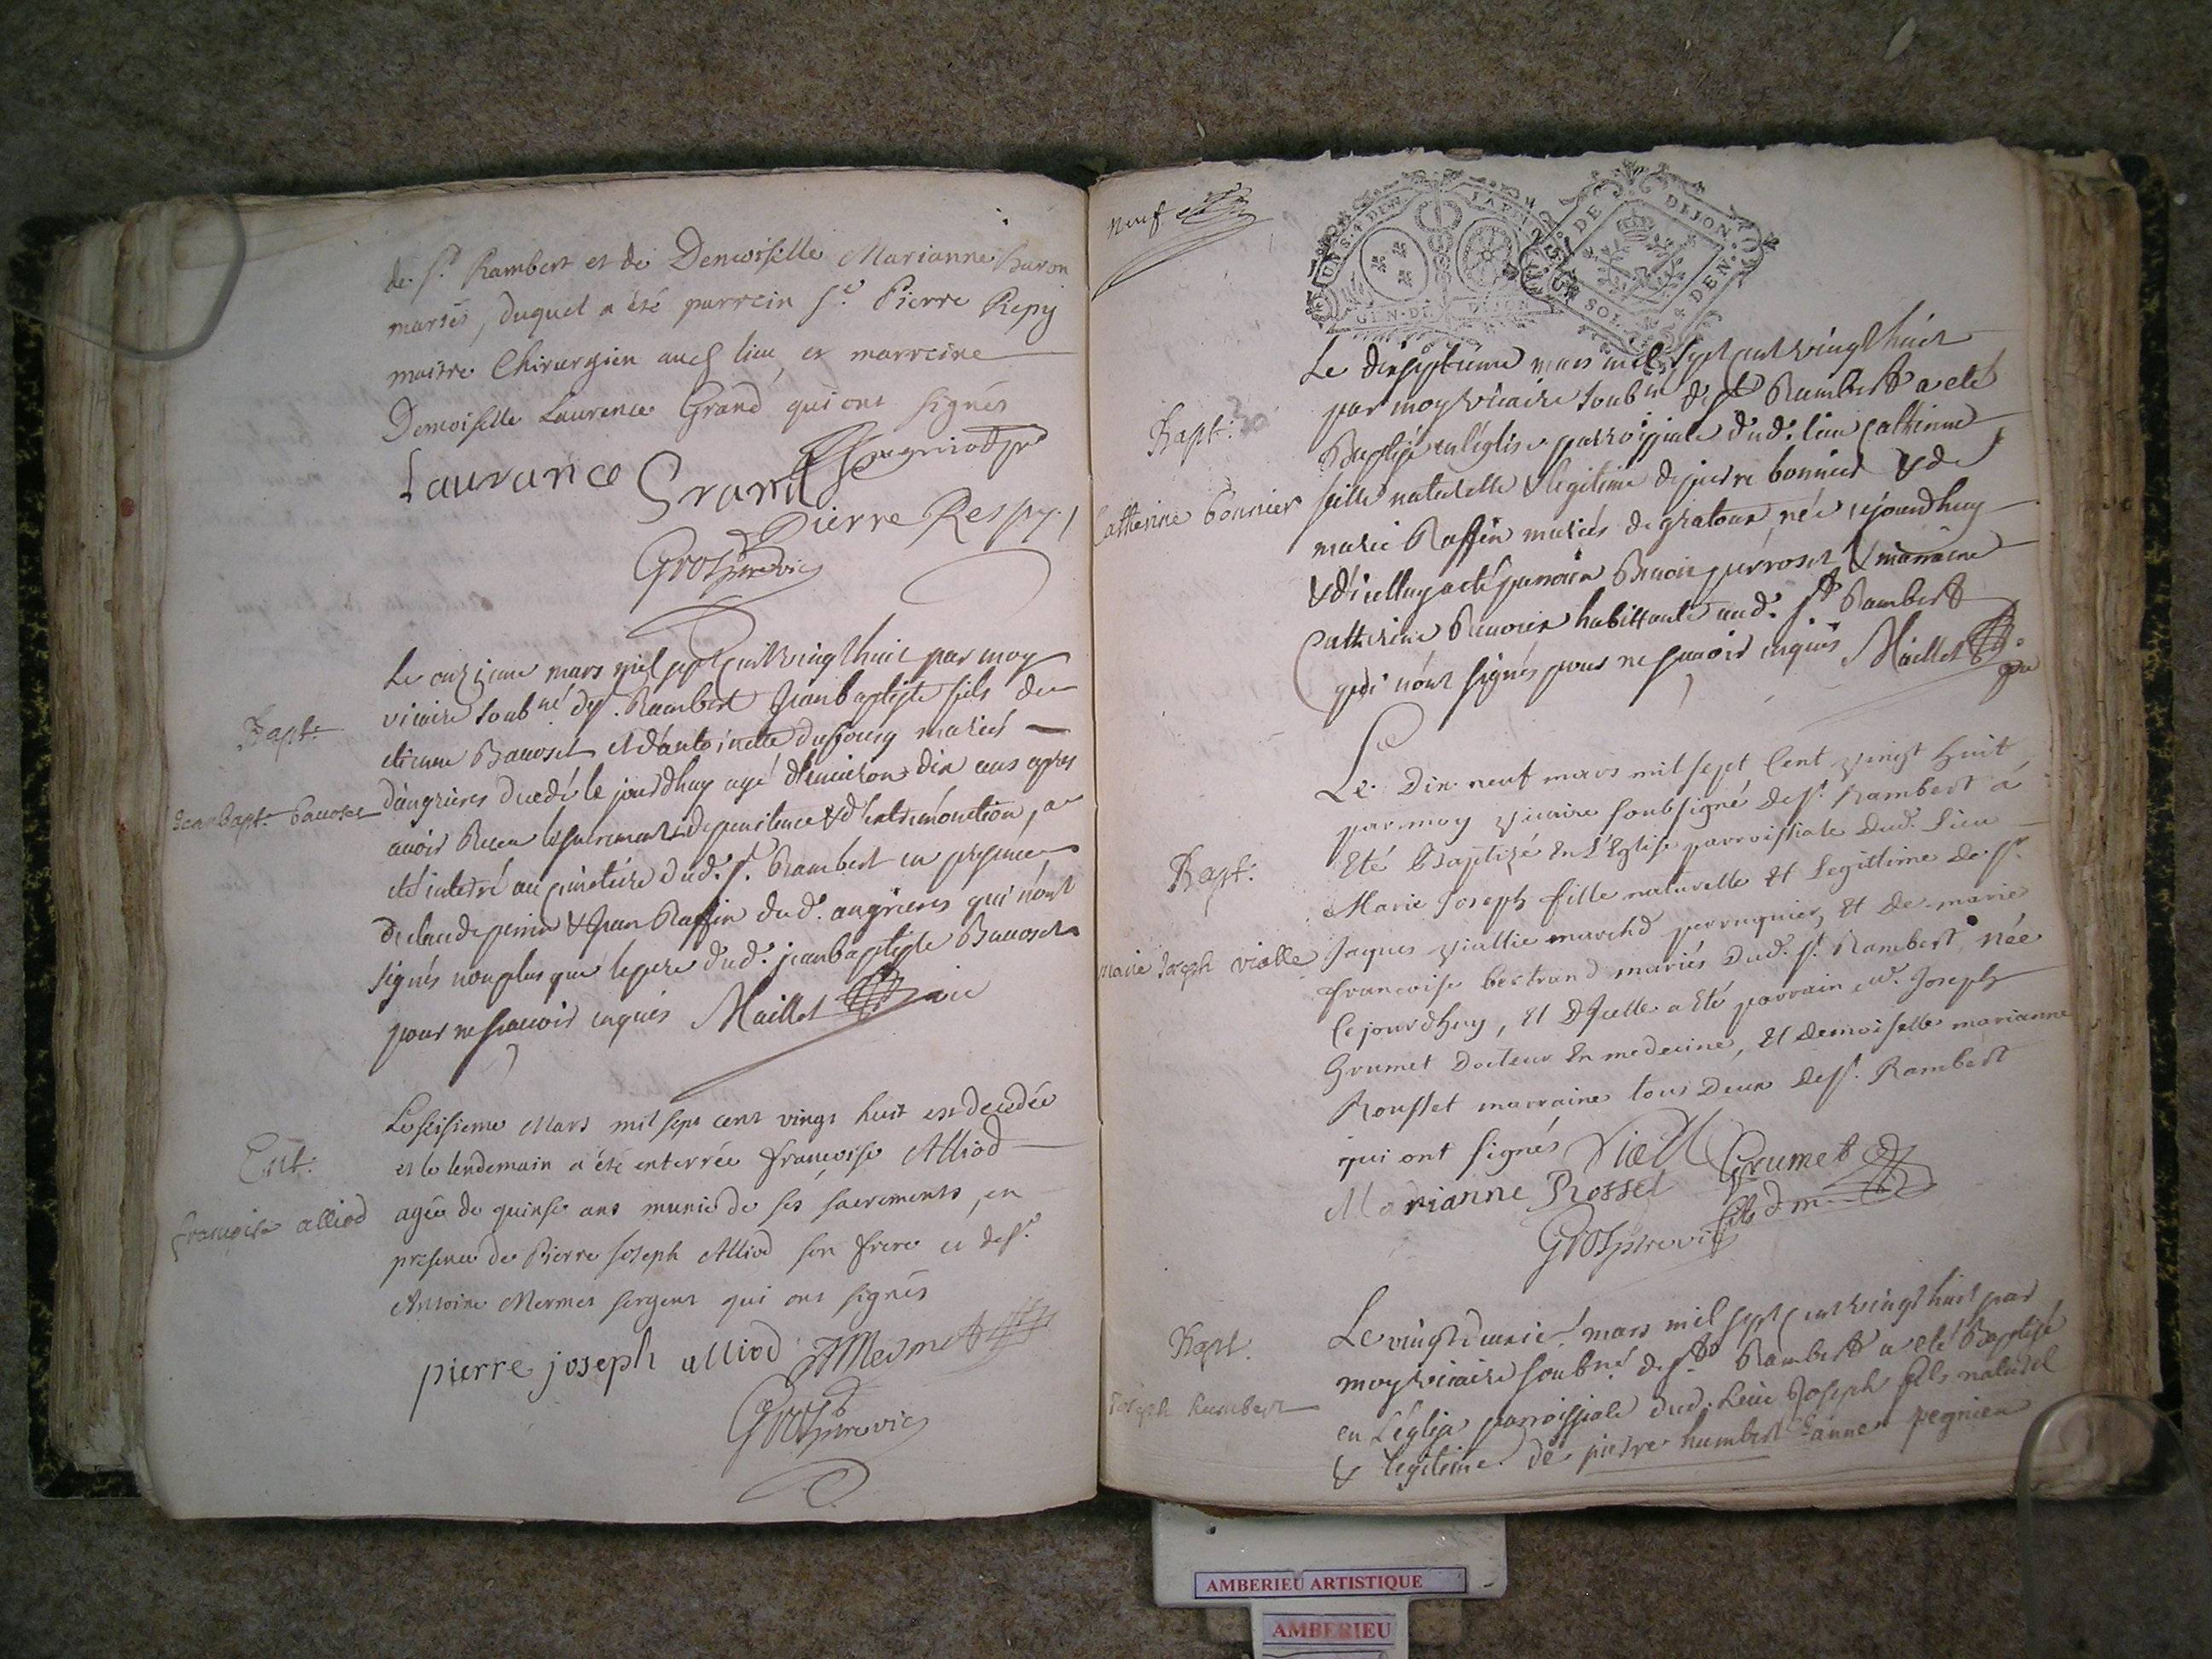 de St. Rambert et de Demoiselle Marianne Buron
mariés, duquel a été parrein Sr. Pierre Repy
maitre Chirurgien aud lieu, et marreine
Demoiselle Laurence Grand qui ont signés
Laurance Grand
Pierre Respy
Grospre vic
Bapt:
Jean bapt. bauoset
Le onzieme mars mil sept cent vingt huit par moy
vicaire soubné de St. Rambert Jean baptiste fils de
etienne Bauoset et d'antoinette dufourg mariés
d'angrieres decedé le jourdhuy agé d'environ dix ans apres
avoir Receu les sacrements de penitence & d'extremonction, a
eté interré au cimetiere dud. St. Rambert en presence
de claude perrin & Jean Raffin dud. angrieres qui n'ont
signés non plus que le pere dud. jean baptiste Bauoset
pour ne sçavoir enquis Maillet vic
Ent:
françoise alliod
Le seisieme Mars mil sept cent vingt huit est decedée
et le lendemain a été enterrée françoise Alliod
agée de quinse ans munie de ses sacrements, en
presence de Pierre Joseph Alliod son frere et de Sr.
Antoine Mermet sergent qui ont signés
pierre joseph alliod AMermet
Grospre vic
neuf
UN S. 4 DEN.
GEN. DE DIJON
DE DIJON
UN SOL 4 DEN.
Bapt: 30
Catherine bonnier
Le dixseptieme mars mil sept cent vingt huit
par moy vicaire soubné de St Rambert a eté
Baptisé en l'église parroissiale dud. lieu Catherine
fille naturelle & legitime de pierre bonnier & de
marie Raffin mariés de gratoux, née cejourdhuy
& d'icelle a eté parrain Benoit perroset & marraine
Catherine habittants aud. St Rambert
qui n'ont signés pour ne sçavoir enquis Maillet
Bapt:
marie Joseph vialle
Le Dix neuf mars mil sept Cent vingt huit
par moy vicaire soubsigné de St. Rambert á
Eté Baptizé En l'Eglise parroissiale dud. Lieu
Marie Joseph fille naturelle Et Legittime de Sr.
Jaques viallie marchd perruquier, Et De marie
françoise bertrand mariés Dud. St. Rambert née
Cejourdhuy, Et D'Icelle a Eté parrain Mr. Joseph
Grumet Docteur En medecine, Et demoiselle marianne
Rousset marraine tous Deux de St. Rambert
qui ont signés Viall Grumet
Marianne Rosset fils d m
Grospre vic
Bapt.
Joseph humbert
Le vingtdeuxie. mars mil sept cent vingt huit par
moy vicaire soubné. de St. Rambert a eté Baptisé
en L'église parroissiale dud. Lieu Joseph fils naturel
& legitime de pierre humbert & anne pegnieu
AMBERIEU ARTISTIQUE
AMBERIEU